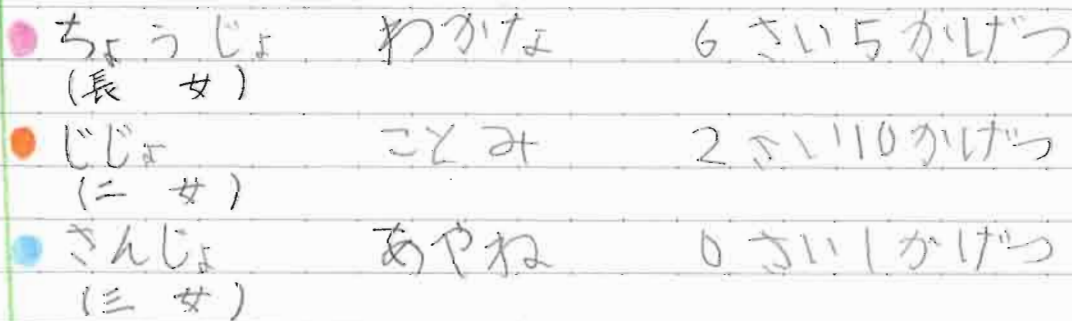 ちょうじょ わかな 6さい5かげつ
(長 女)
じじょ ことみ 2さい10かげつ
(二 女)
さんじょ あやね 0さい1かげつ
(三 女)